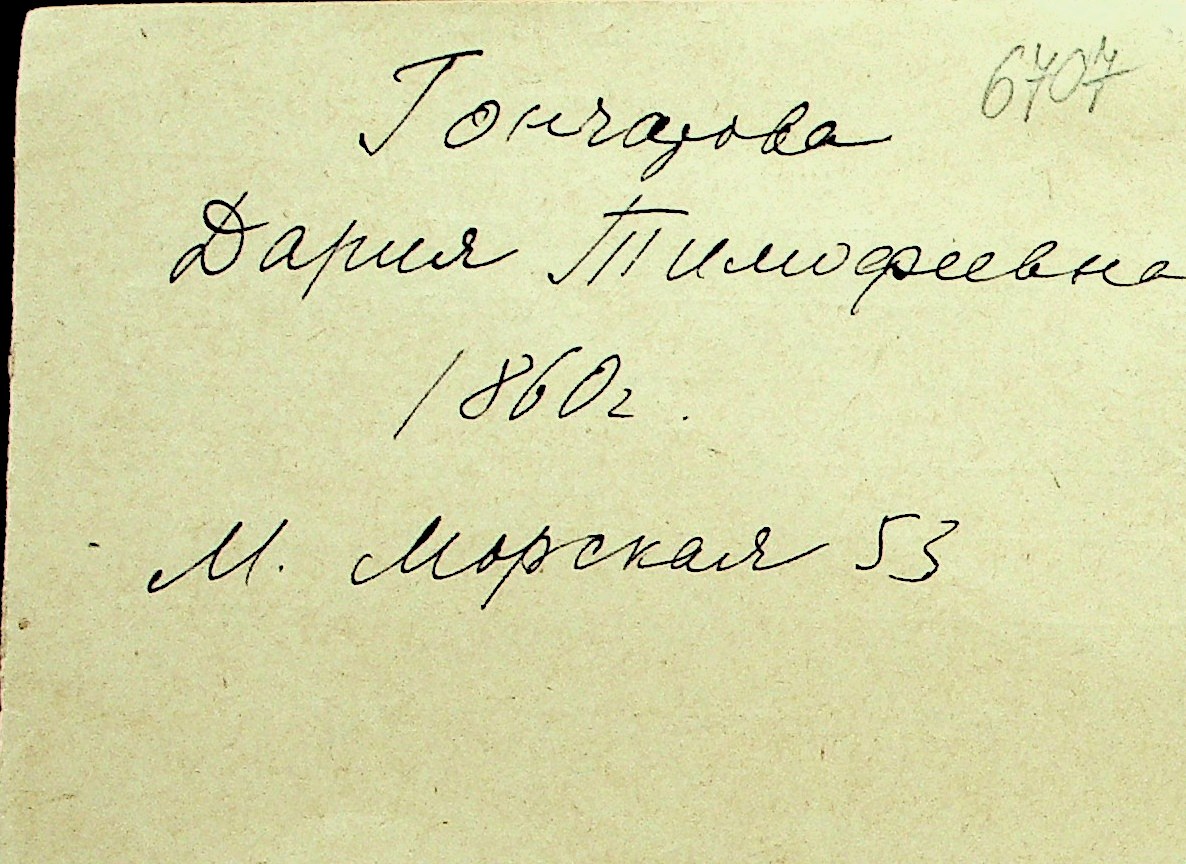 6707
Гончарова
Дария Тимофеевна
1860г.
М. Морская 53